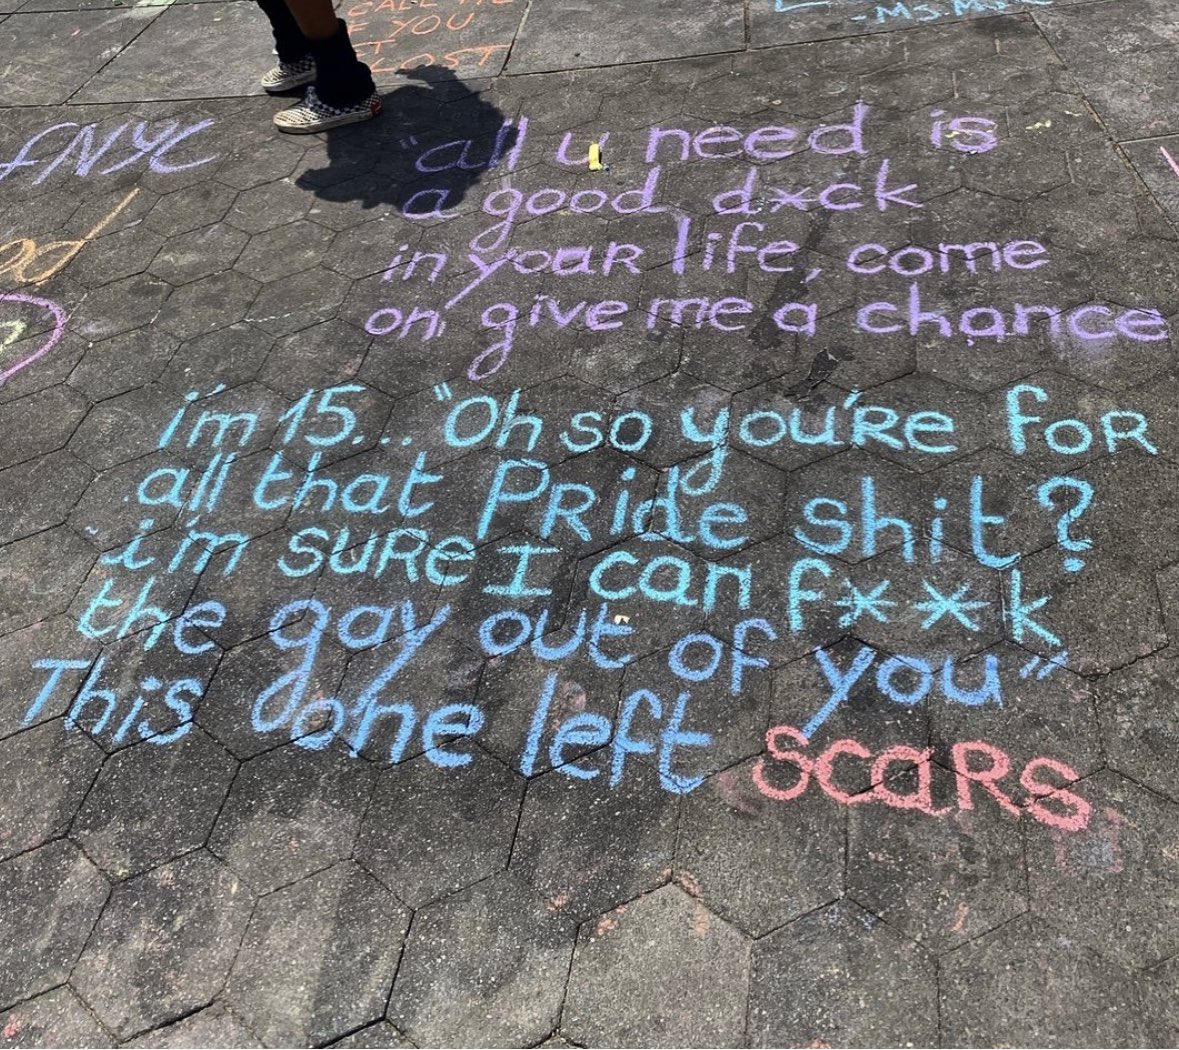 CALL ME
IF YOU
LOST
-Ms.
fNYC
"all u need is
a good d*ck
in your life, come
on, give me a chance
i'm 15... "Oh so you're for
all that Pride shit?
i'm sure I can f**k
the gay out of you"
This one left scars